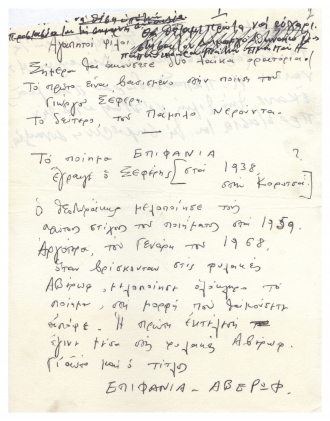 1
Αγαπητοί φίλοι
Σήμερα θα ακούσετε δυο λαϊκά ορατόρια.
Το πρώτο είναι βασισμένο στην ποίηση του
Γιώργου Σεφέρη.
Το δεύτερο, του Πάμπλο Νερούντα.
Το ποίημα ΕΠΙΦΑΝΙΑ
έγραψε ο Σεφέρης [στα 1938
στην
?
Ο Θεοδωράκης μελοποίησε τους
πρώτους στίχους του ποιήματος στα 1959.
Αργότερα, τον Γενάρη του 1968,
όταν βρίσκονταν στις φυλακές
Αβέρωφ, μελοποίησε ολόκληρο το
ποίημα, στη μορφή που θα ακούσετε
απόψε. Η πρώτη εκτέλεση
έγινε μέσα στις φυλακές Αβέρωφ.
Γι' αυτό και ο τίτλος
ΕΠΙΦΑΝΙΑ - ΑΒΕΡΩΦ.